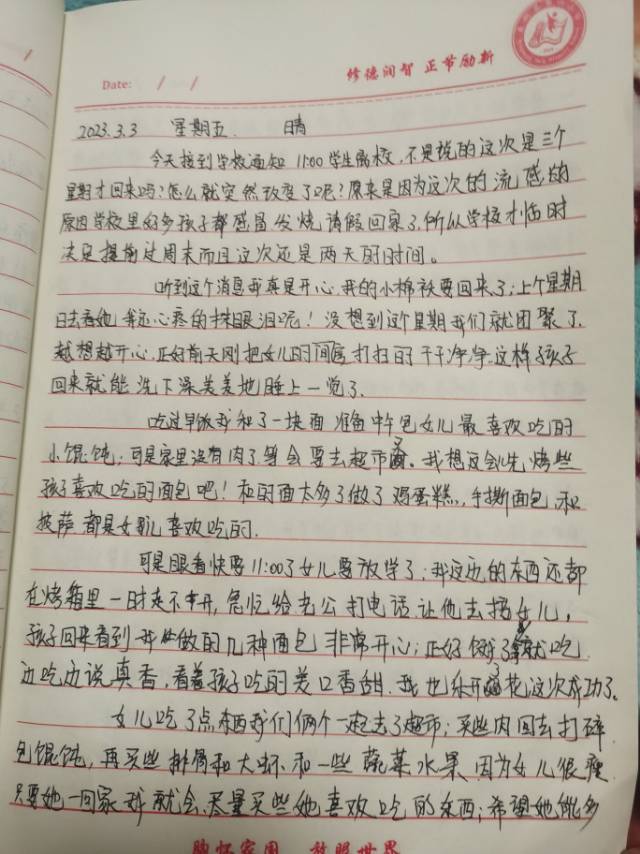 Date: / /
修德润智 正节励新
2023.3.3 星期五. 晴
今天接到学校通知 11:00学生离校,不是说的这次是三个
星期才回来吗?怎么就突然改变了呢?原来是因为这次的流感的
原因学校里好多孩子都感冒发烧请假回家了,所以学校才临时
决定提前过周末而且这次还是两天的时间。
听到这个消息我真是开心,我的小棉袄要回来了;上个星期
日去看她我还心疼的抹眼泪呢!没想到这个星期我们就团聚了.
越想越开心.正好前天刚把女儿的房间打扫的干干净净这样孩子
回来就能洗下澡美美地睡上一觉了.
吃过早饭我和了一块面 准备中午包女儿最喜欢吃的
小馄饨;可是家里没有肉了等会要去超市买。我想没会先烤些
孩子喜欢吃的面包吧!和的面太多了做了鸡蛋糕,手撕面包和
披萨都是女儿喜欢吃的.
可是眼看快要11:00了女儿要放学了;我这边的东西还都
在烤箱里一时走不开,急忙给老公打电话.让他去接女儿,
孩子回来看到我做的几种面包 非常开心;正好饿了就吃
边吃边说真香,看着孩子吃的美口香甜.我也乐开了花这次成功了。
女儿吃了点东西我们俩个一起去了超市;买些肉回去打碎
包馄饨,再买些排骨和大虾和一些蔬菜水果 因为女儿很瘦
只要她一回家我就会.尽量买些她喜欢吃的东西;希望她能多
胸怀家国 放眼世界